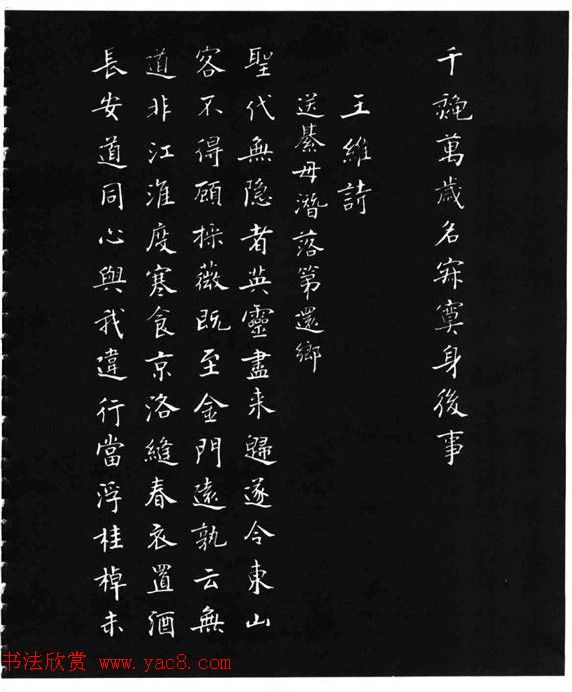 千秋萬歲名寂寞身後事
王維詩
送綦毋潛落第還鄉
聖代無隐者英靈盡来歸遂令東山
客不得顧採薇既至金門遠孰云無
道非江淮度寒食京洛縫春衣置酒
長安道同心與我違行當浮桂棹未
书法欣赏 www.yac8.com